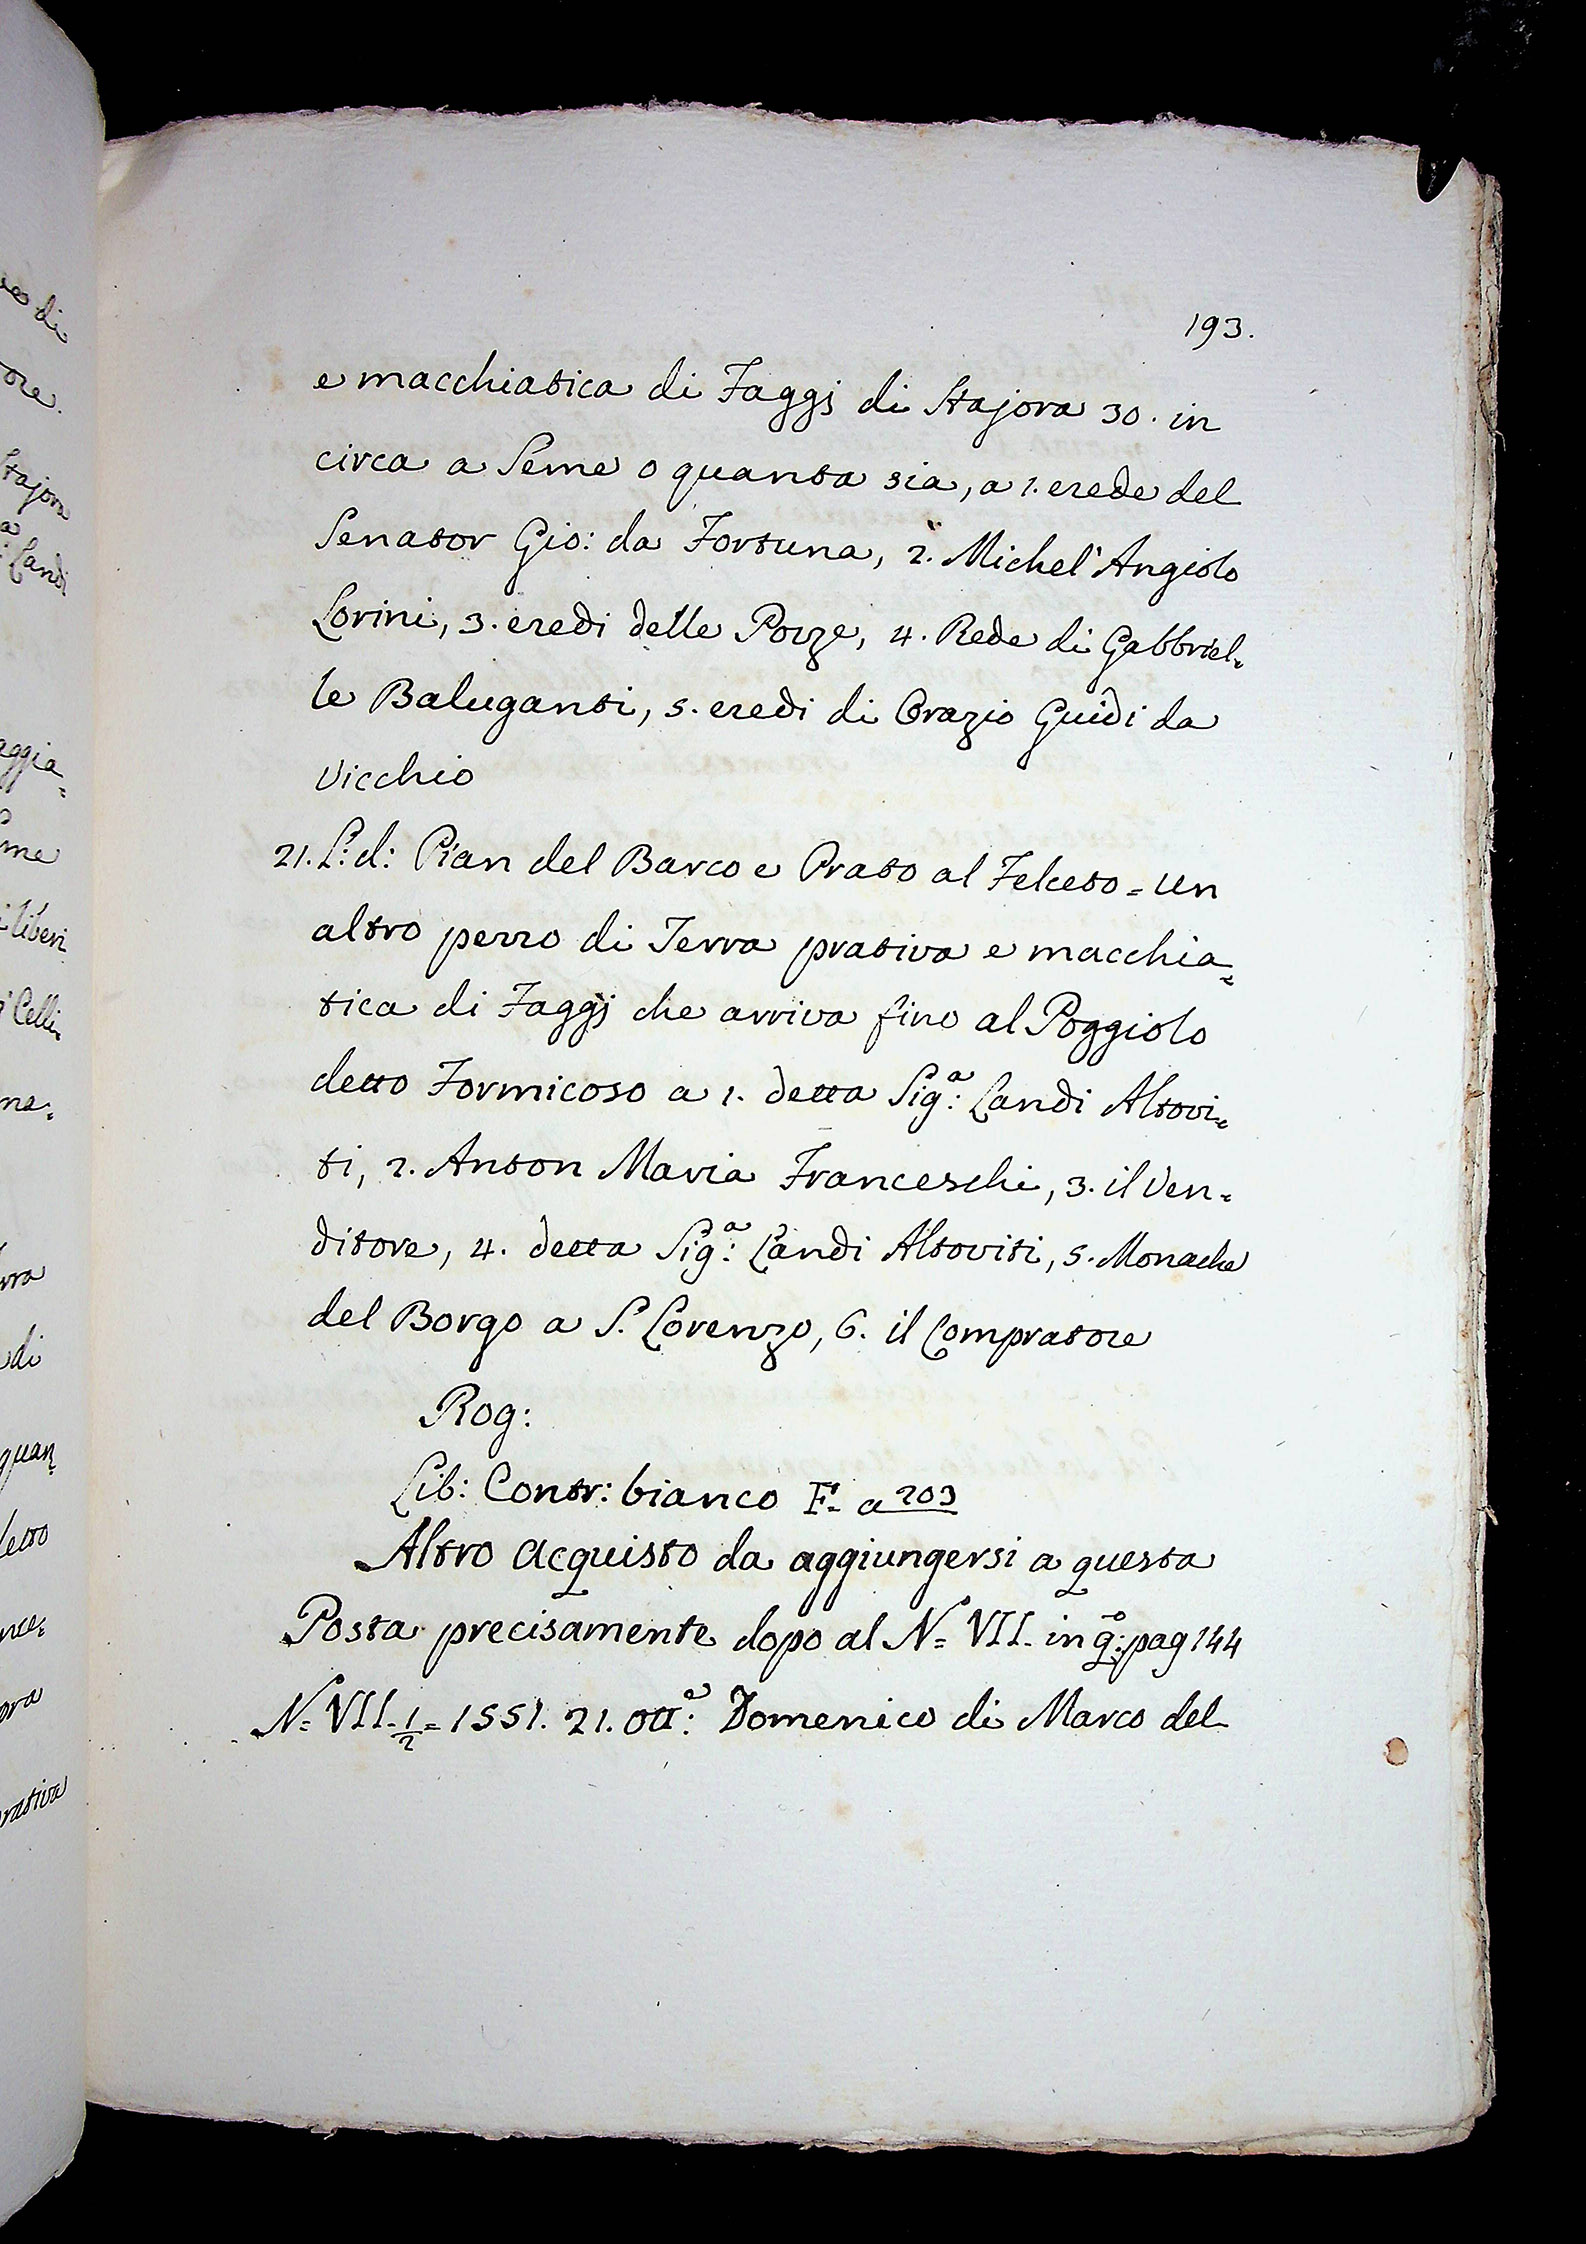 193.
e macchiatica di Faggj di Stajora 30. in
circa a Seme o quanta sia, a 1. erede del
Senator Gio: da Fortuna, 2. Michel'Angiolo
Lorini, 3. eredi delle Pozze, 4. Rede di Gabbriel=
le Baluganti, 5. eredi di Orazio Guidi da
Vicchio
21. L: d: Pian del Barco e Prato al Felceto = Un
altro pezzo di Terra prativa e macchia=
tica di Faggj che arriva fino al Poggiolo
detto Formicoso a 1. detta Sig:ª Landi Altovi=
ti, 2. Anton Maria Franceschi, 3. il Ven=
ditore, 4. detta Sig:ª Landi Altoviti, 5. Monache
del Borgo a S. Lorenzo, 6. il Compratore
Rog:
Lib: Contr: bianco F. a 203
Altro acquisto da aggiungersi a questa
Posta precisamente dopo al N.º VII. in q:º pag 144
N.º VII. 1/2 = 1551. 21. Ott:e Domenico di Marco del
ue di
ore.
Stajora
a
Landi
aggia=
me
liberi
Celli=
na:
rra
di
quan=
detto
nce=
ora
rativa